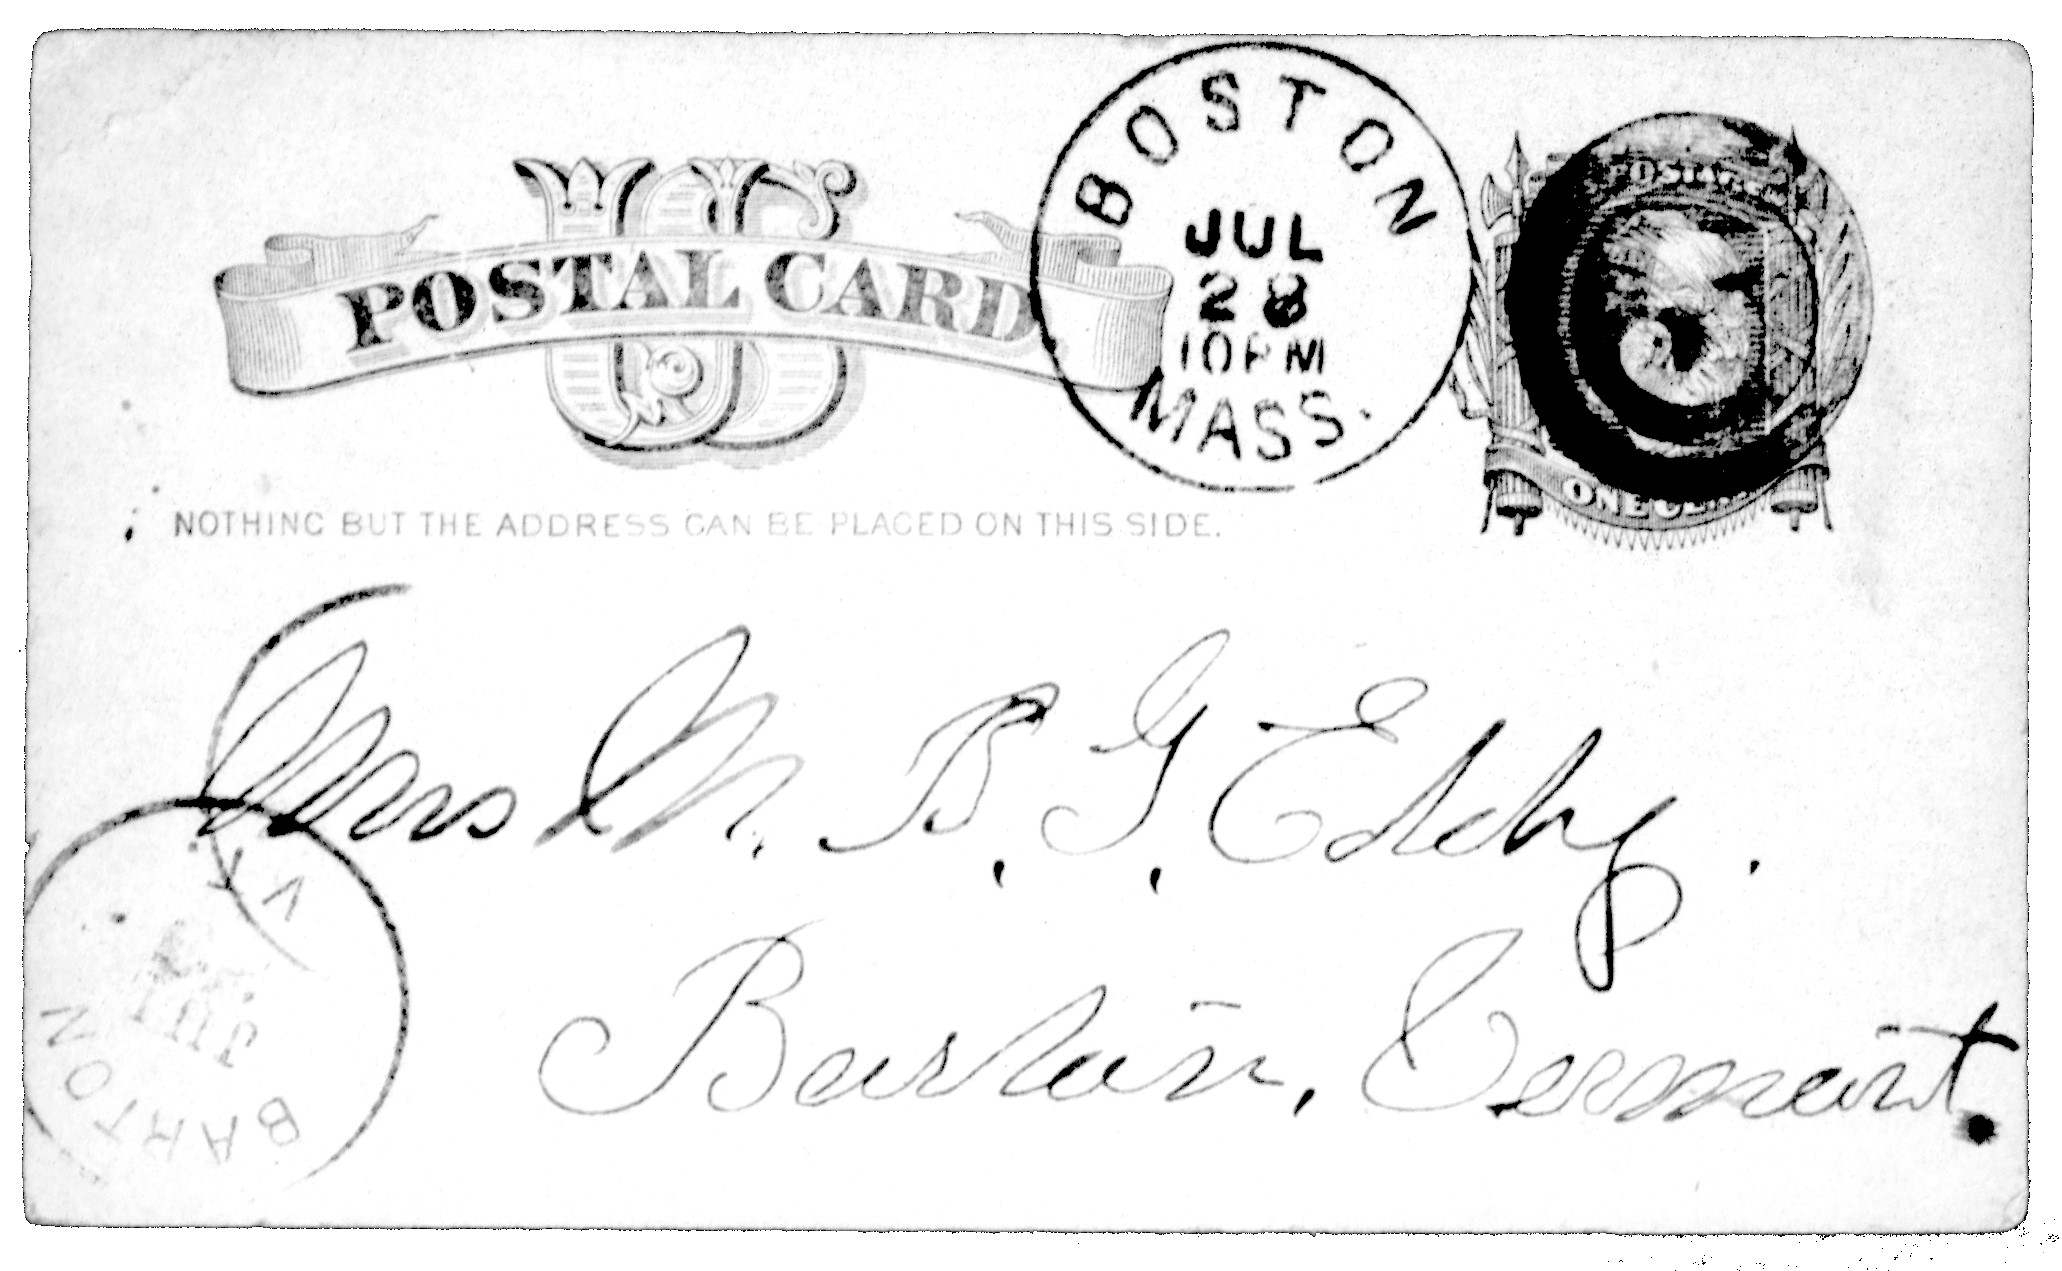 US
POSTAL CARD
BOSTON
JUL
28
10 PM
MASS.
POSTAGE
ONE CENT
NOTHING BUT THE ADDRESS CAN BE PLACED ON THIS SIDE.
Mrs M. B. G. Eddy.
Barton, Vermont.
BARTON
JUL
VT.